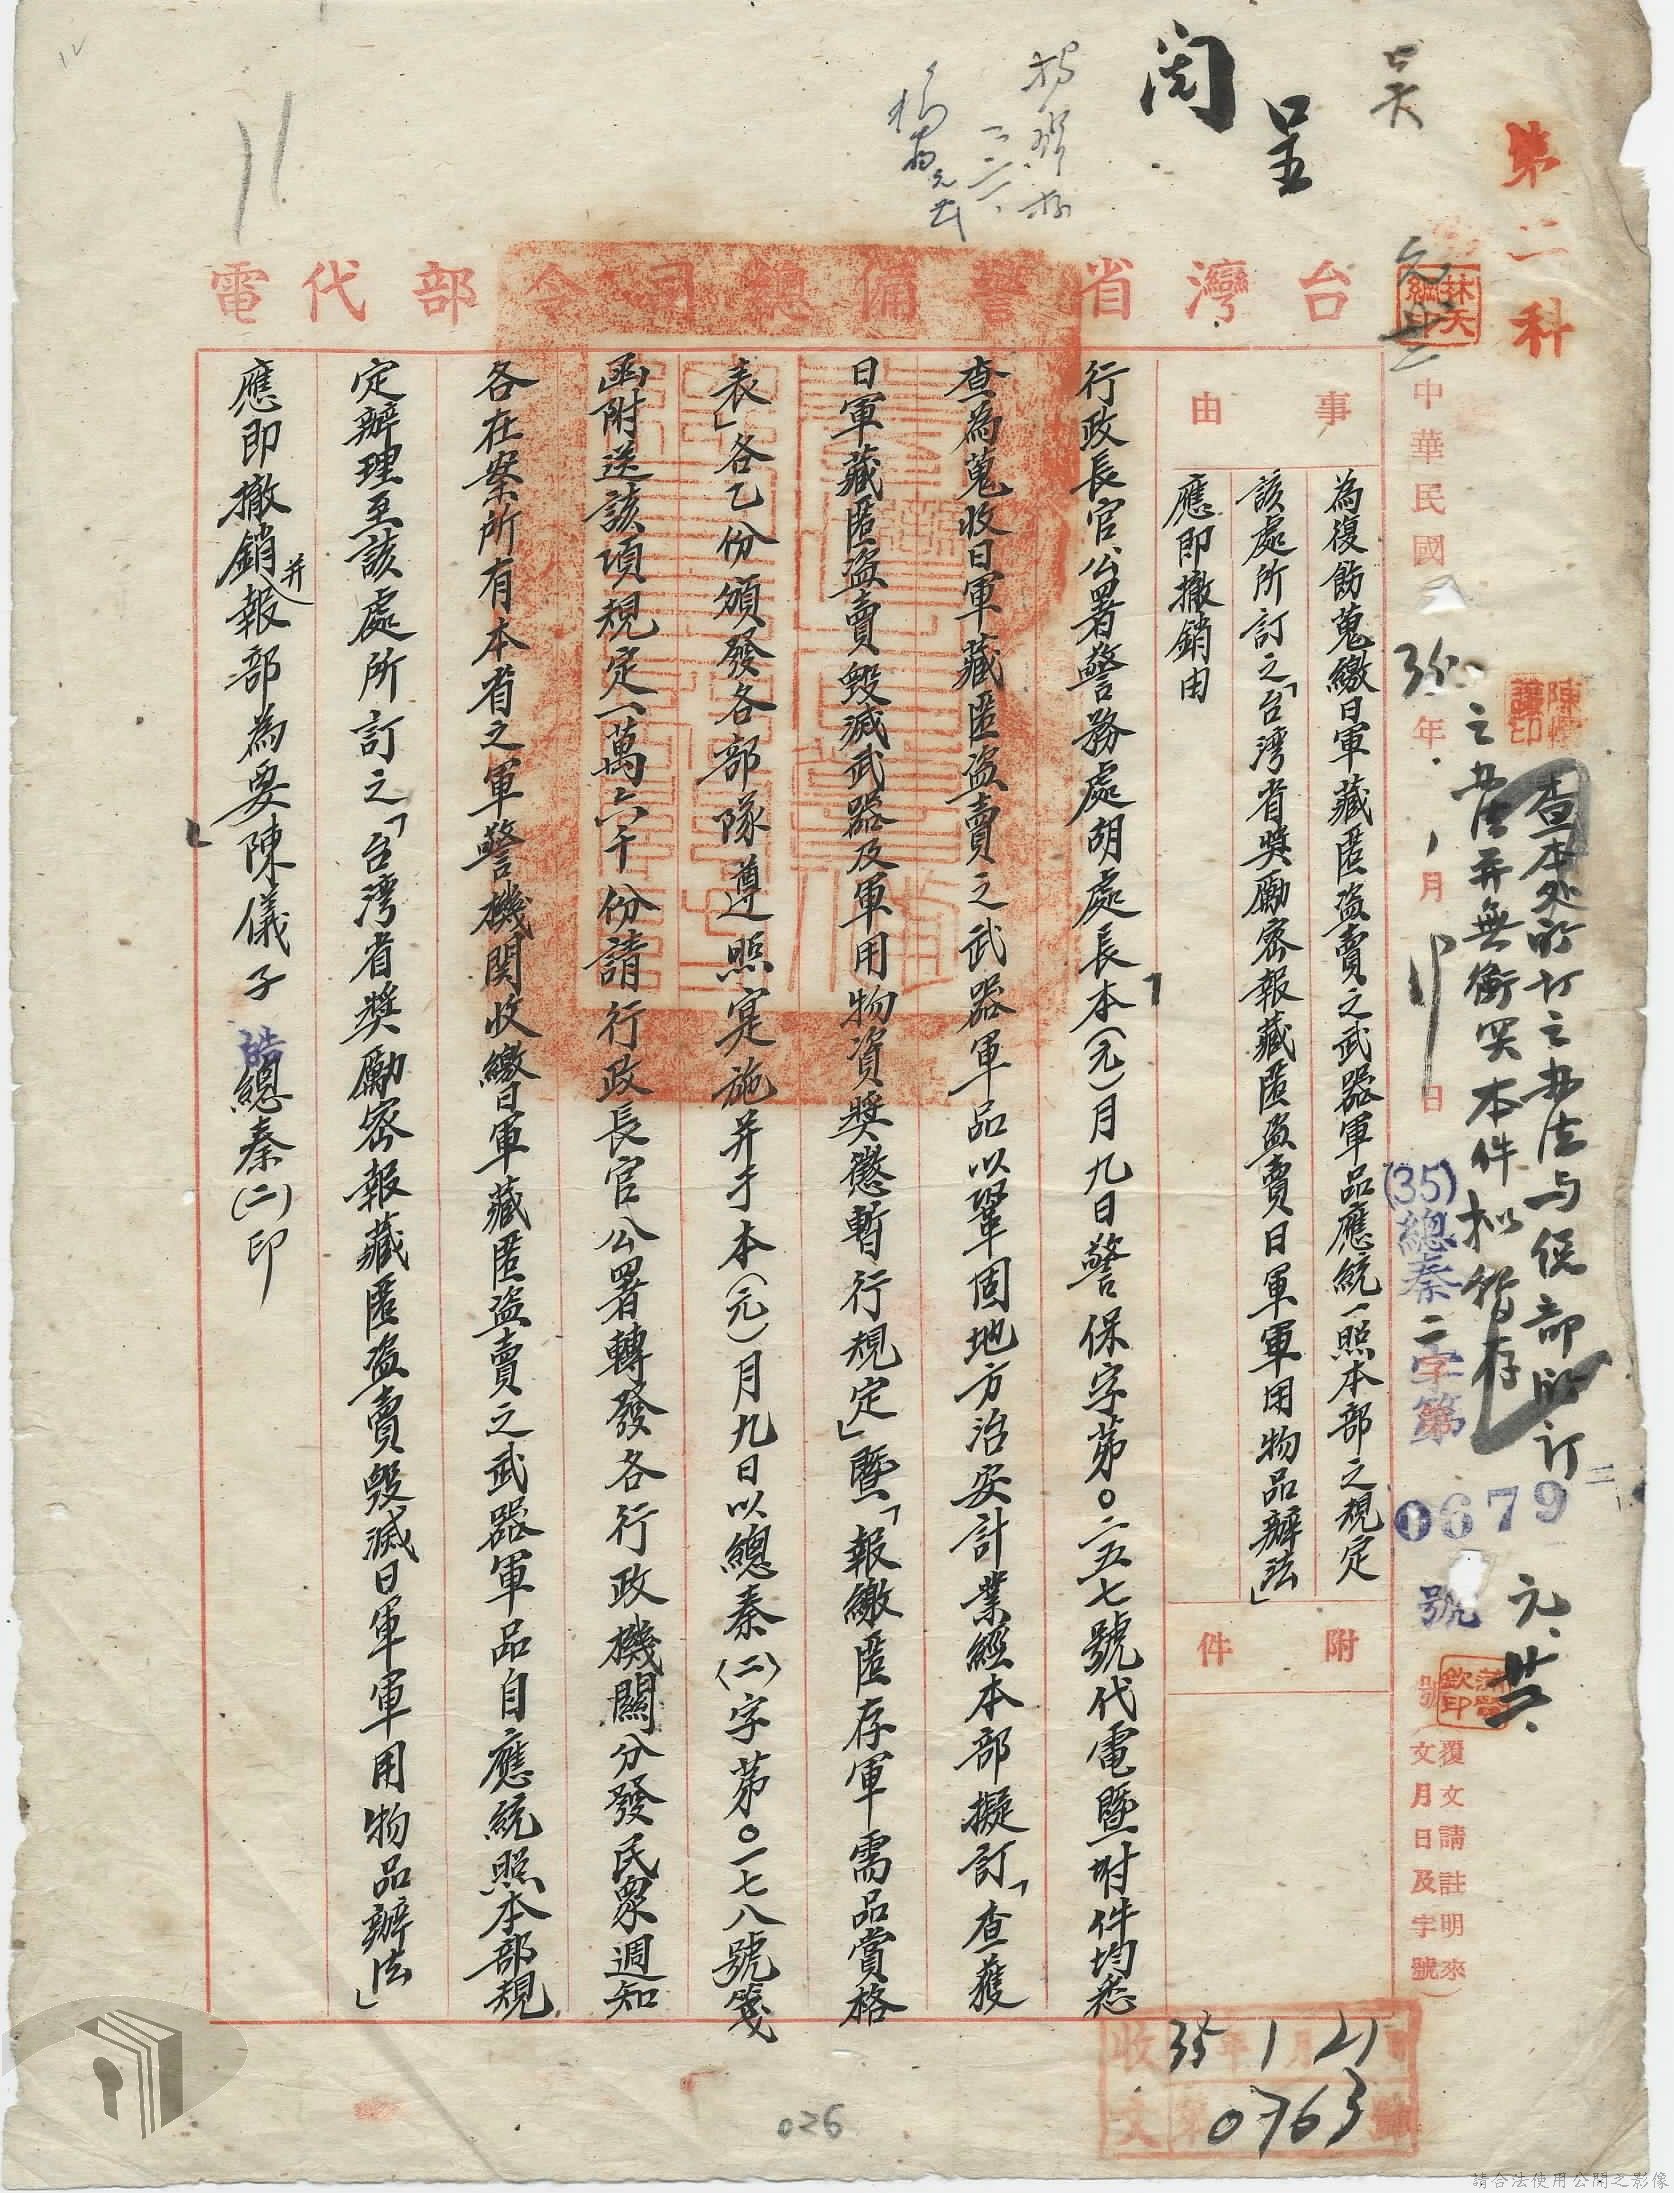 第二科
吳
呈
閱
台灣省警備總司令部代電
中華民國35年1月19日
(35)總秦二字第0679號
覆文請註明來
文月日及字號
查本处所訂之办法与保部所訂
之办法并無衝突本件拟暫存
元、廿一、
事由
為復飭蒐繳日軍藏匿盜賣之武器軍品應統一照本部之規定
該處所訂之「台湾省獎勵密報藏匿盜賣日軍軍用物品辦法」
應即撤銷由
附件
行政長官公署警務處胡處長本(元)月九日警保字第〇二五七號代電暨附件均悉
查為蒐收日軍藏匿盜賣之武器軍品以鞏固地方治安計業經本部擬訂「查獲
日軍藏匿盜賣毀滅武器及軍用物資獎懲暫行規定」暨「報繳匿存軍需品賞格
表」各乙份頒發各部隊遵照寔施并于本(元)月九日以總秦(二)字第〇一七八號箋
函附送該項規定一萬六千份請行政長官公署轉發各行政機關分發民眾週知
各在案所有本省之軍警機関收繳日軍藏匿盜賣之武器軍品自應統照本部規
定辦理至該處所訂之「台湾省獎勵密報藏匿盜賣毀滅日軍軍用物品辦法」
應即撤銷并報部為要陳儀子皓總秦(二)印
收文
35年1月21日
第0763號
026
請合法使用公開之影像